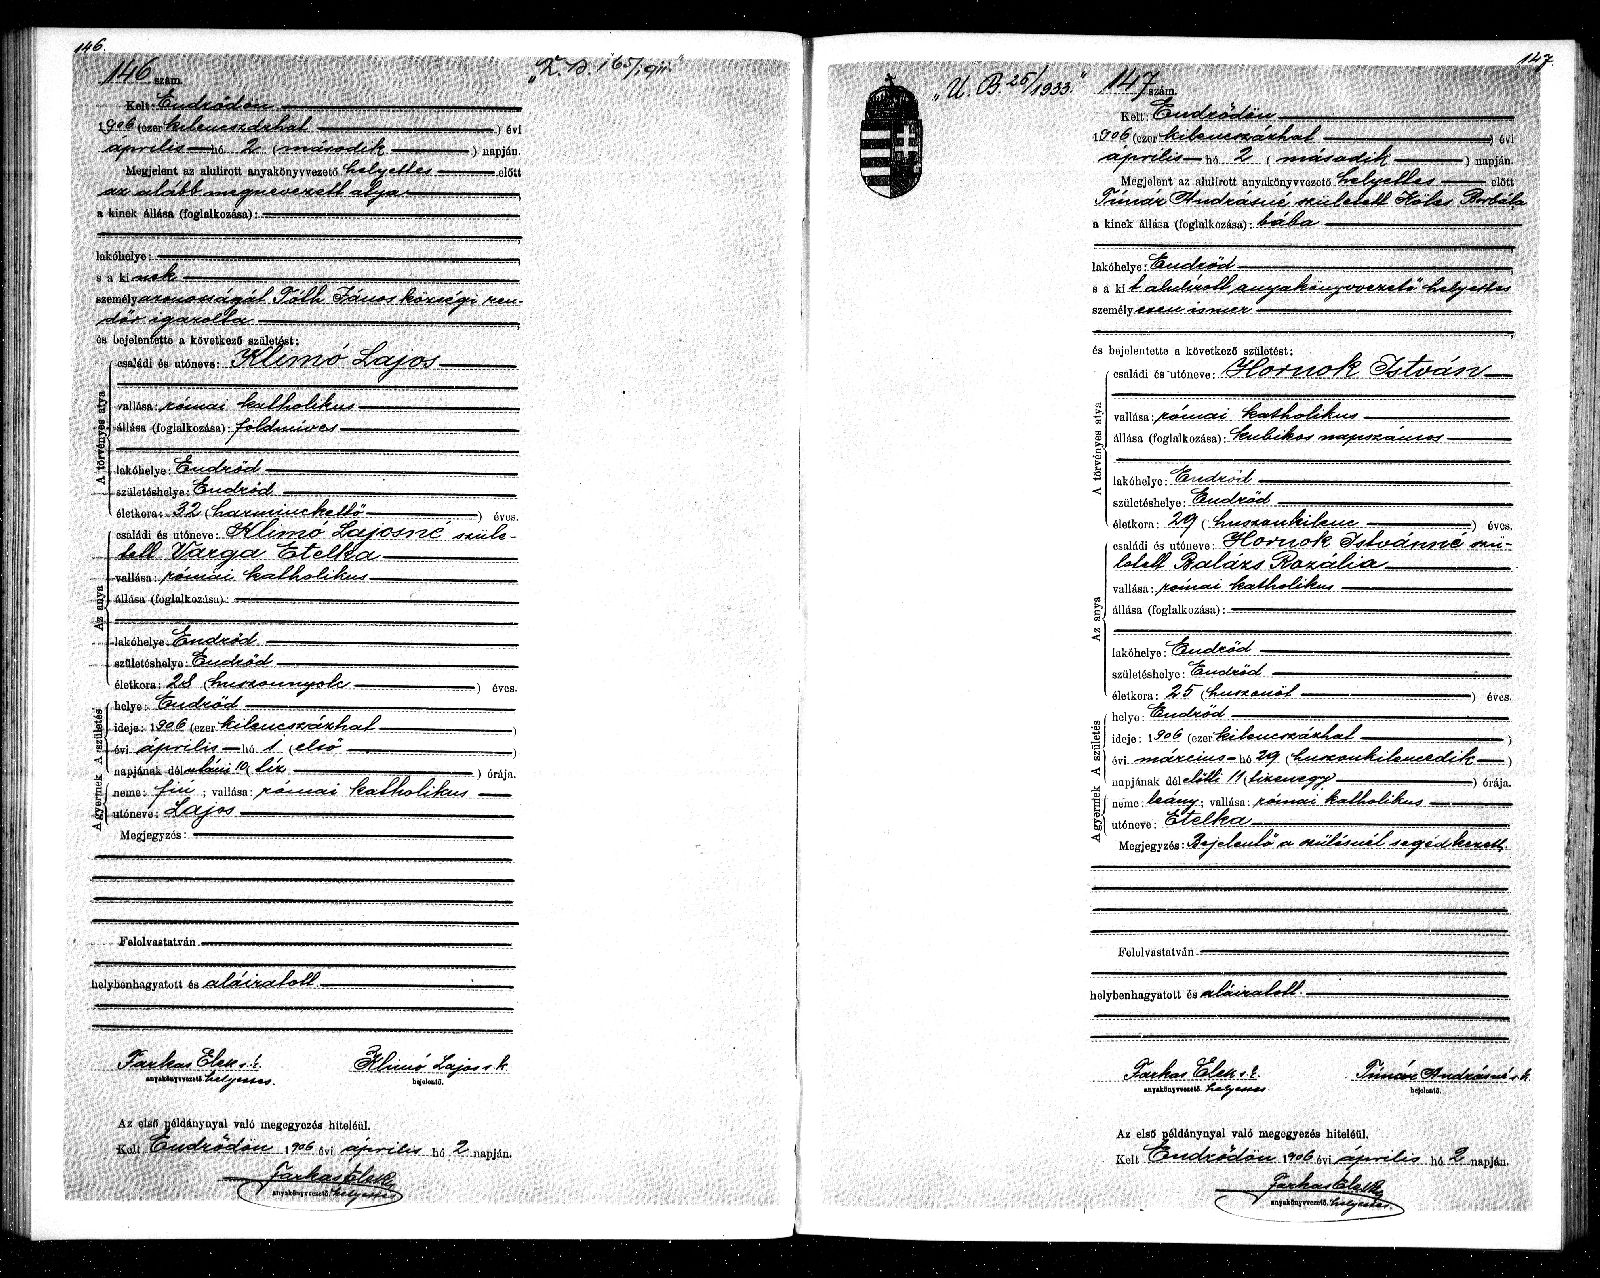 146.
146 szám.
Kelt Endrődön
1906 (ezer kilenczszázhat) évi
április hó 2 (második) napján.
Megjelent az alulirott anyakönyvvezető helyettes előtt
az alább megnevezett atya
a kinek állása (foglalkozása):
lakóhelye:
s a kinek
személyazonosságát Tóth János községi ren-
dőr igazolta
és bejelentette a következő születést:
A törvényes atya
családi és utóneve: Klimó Lajos
vallása: római katholikus
állása (foglalkozása): földmíves
lakóhelye: Endrőd
születéshelye: Endrőd
életkora: 32 (harminckettő) éves.
Az anya
családi és utóneve: Klimó Lajosné szüle-
tett Varga Etelka
vallása: római katholikus
állása (foglalkozása):
lakóhelye: Endrőd
születéshelye: Endrőd
életkora: 28 (huszonnyolc) éves.
A születés
helye: Endrőd
ideje: 1906 (ezer kilencszázhat)
évi április hó 1 (első)
napjának délutáni 10 (tíz) órája.
A gyermek
neme: fiú; vallása: római katholikus
utóneve: Lajos
Megjegyzés:
Felolvastatván
helybenhagyatott és aláiratott
Farkas Elek s.k.
anyakönyvvezető helyettes.
Klimó Lajos s.k.
bejelentő.
Az első példánynyal való megegyezés hiteléül.
Kelt Endrődön 1906 évi április hó 2 napján.
Farkas Elek
anyakönyvvezető helyettes
147.
"U. B. 25/1933."
147 szám.
Kelt: Endrődön
1906 (ezer kilencszázhat) évi
április hó 2 (második) napján.
Megjelent az alulirott anyakönyvvezető helyettes előtt
Tímár Andrásné született Borbála
a kinek állása (foglalkozása): bába
lakóhelye: Endrőd
s a kit alulírott anyakönyvvezető helyettes
személyesen ismer
és bejelentette a következő születést:
A törvényes atya
családi és utóneve: Hornok István
vallása: római katholikus
állása (foglalkozása): kubikos napszámos
lakóhelye: Endrőd
születéshelye: Endrőd
életkora: 29 (huszonkilenc) éves.
Az anya
családi és utóneve: Hornok Istvánné szü-
letett Balázs Rozália
vallása: római katholikus
állása (foglalkozása):
lakóhelye: Endrőd
születéshelye: Endrőd
életkora: 25 (huszonöt) éves.
A születés
helye: Endrőd
ideje: 1906 (ezer kilencszázhat)
évi március hó 29 (huszonkilencedik)
napjának délelőtti 11 (tizenegy) órája.
A gyermek
neme: leány; vallása: római katholikus
utóneve: Etelka
Megjegyzés: Bejelentő a szülésnél segédkezett.
Felolvastatván
helybenhagyatott és aláiratott.
Farkas Elek s.k.
anyakönyvvezető helyettes
Tímár Andrásné s.k.
bejelentő.
Az első példánynyal való megegyezés hiteléül.
Kelt Endrődön 1906 évi április hó 2 napján.
Farkas Elek
anyakönyvvezető helyettes.